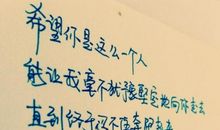 希望你是这么一个人
能让我毫不犹豫坚定地向你走去
直到终于还不